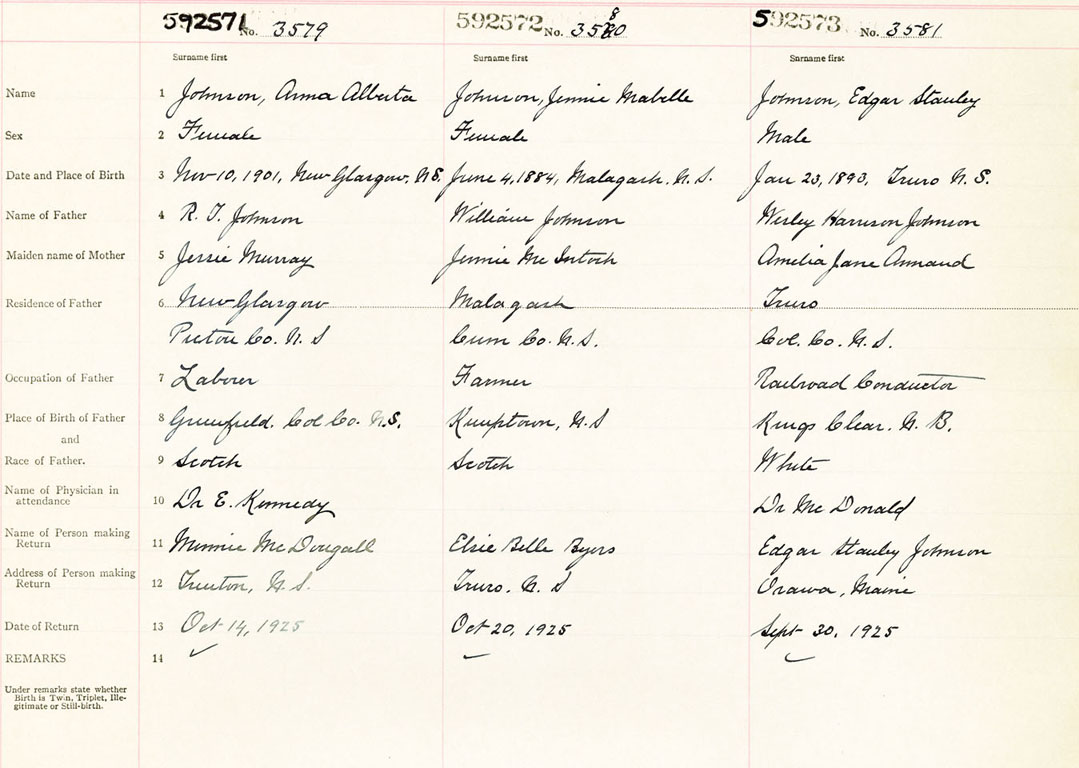 592571 No. 3579 592572 No. 3580 592573 No. 3581
Surname first Surname first Surname first
Name 1 Johnson, Anna Alberta Johnson, Jennie Mabelle Johnson, Edgar Stanley
Sex 2 Female Female Male
Date and Place of Birth 3 Nov 10, 1901, New Glasgow, N.S. June 4, 1884, Malagash. N.S. Jan 23, 1893, Truro N.S.
Name of Father 4 R. T. Johnson William Johnson Wesley Harrison Johnson
Maiden name of Mother 5 Jessie Murray Jennie Mc Intosh Amelia Jane Armand
Residence of Father 6 New Glasgow Malagash Truro
Pictou Co. N.S Cum Co. N.S. Col. Co. N.S.
Occupation of Father 7 Laborer Farmer Railroad Conductor
Place of Birth of Father 8 Greenfield. Col Co. N.S. Kemptown, N.S Kings Clear. N.B.
and
Race of Father. 9 Scotch Scotch White
Name of Physician in
attendance 10 Dr E. Kennedy Dr Mc Donald
Name of Person making
Return 11 Minnie Mc Dougall Elsie Belle Byers Edgar Stanley Johnson
Address of Person making
Return 12 Trenton, N.S. Truro. N.S Maine
Date of Return 13 Oct 14, 1925 Oct 20, 1925 Sept 30, 1925
REMARKS 14
Under remarks state whether
Birth is Twin, Triplet, Ille-
gitimate or Still-birth.